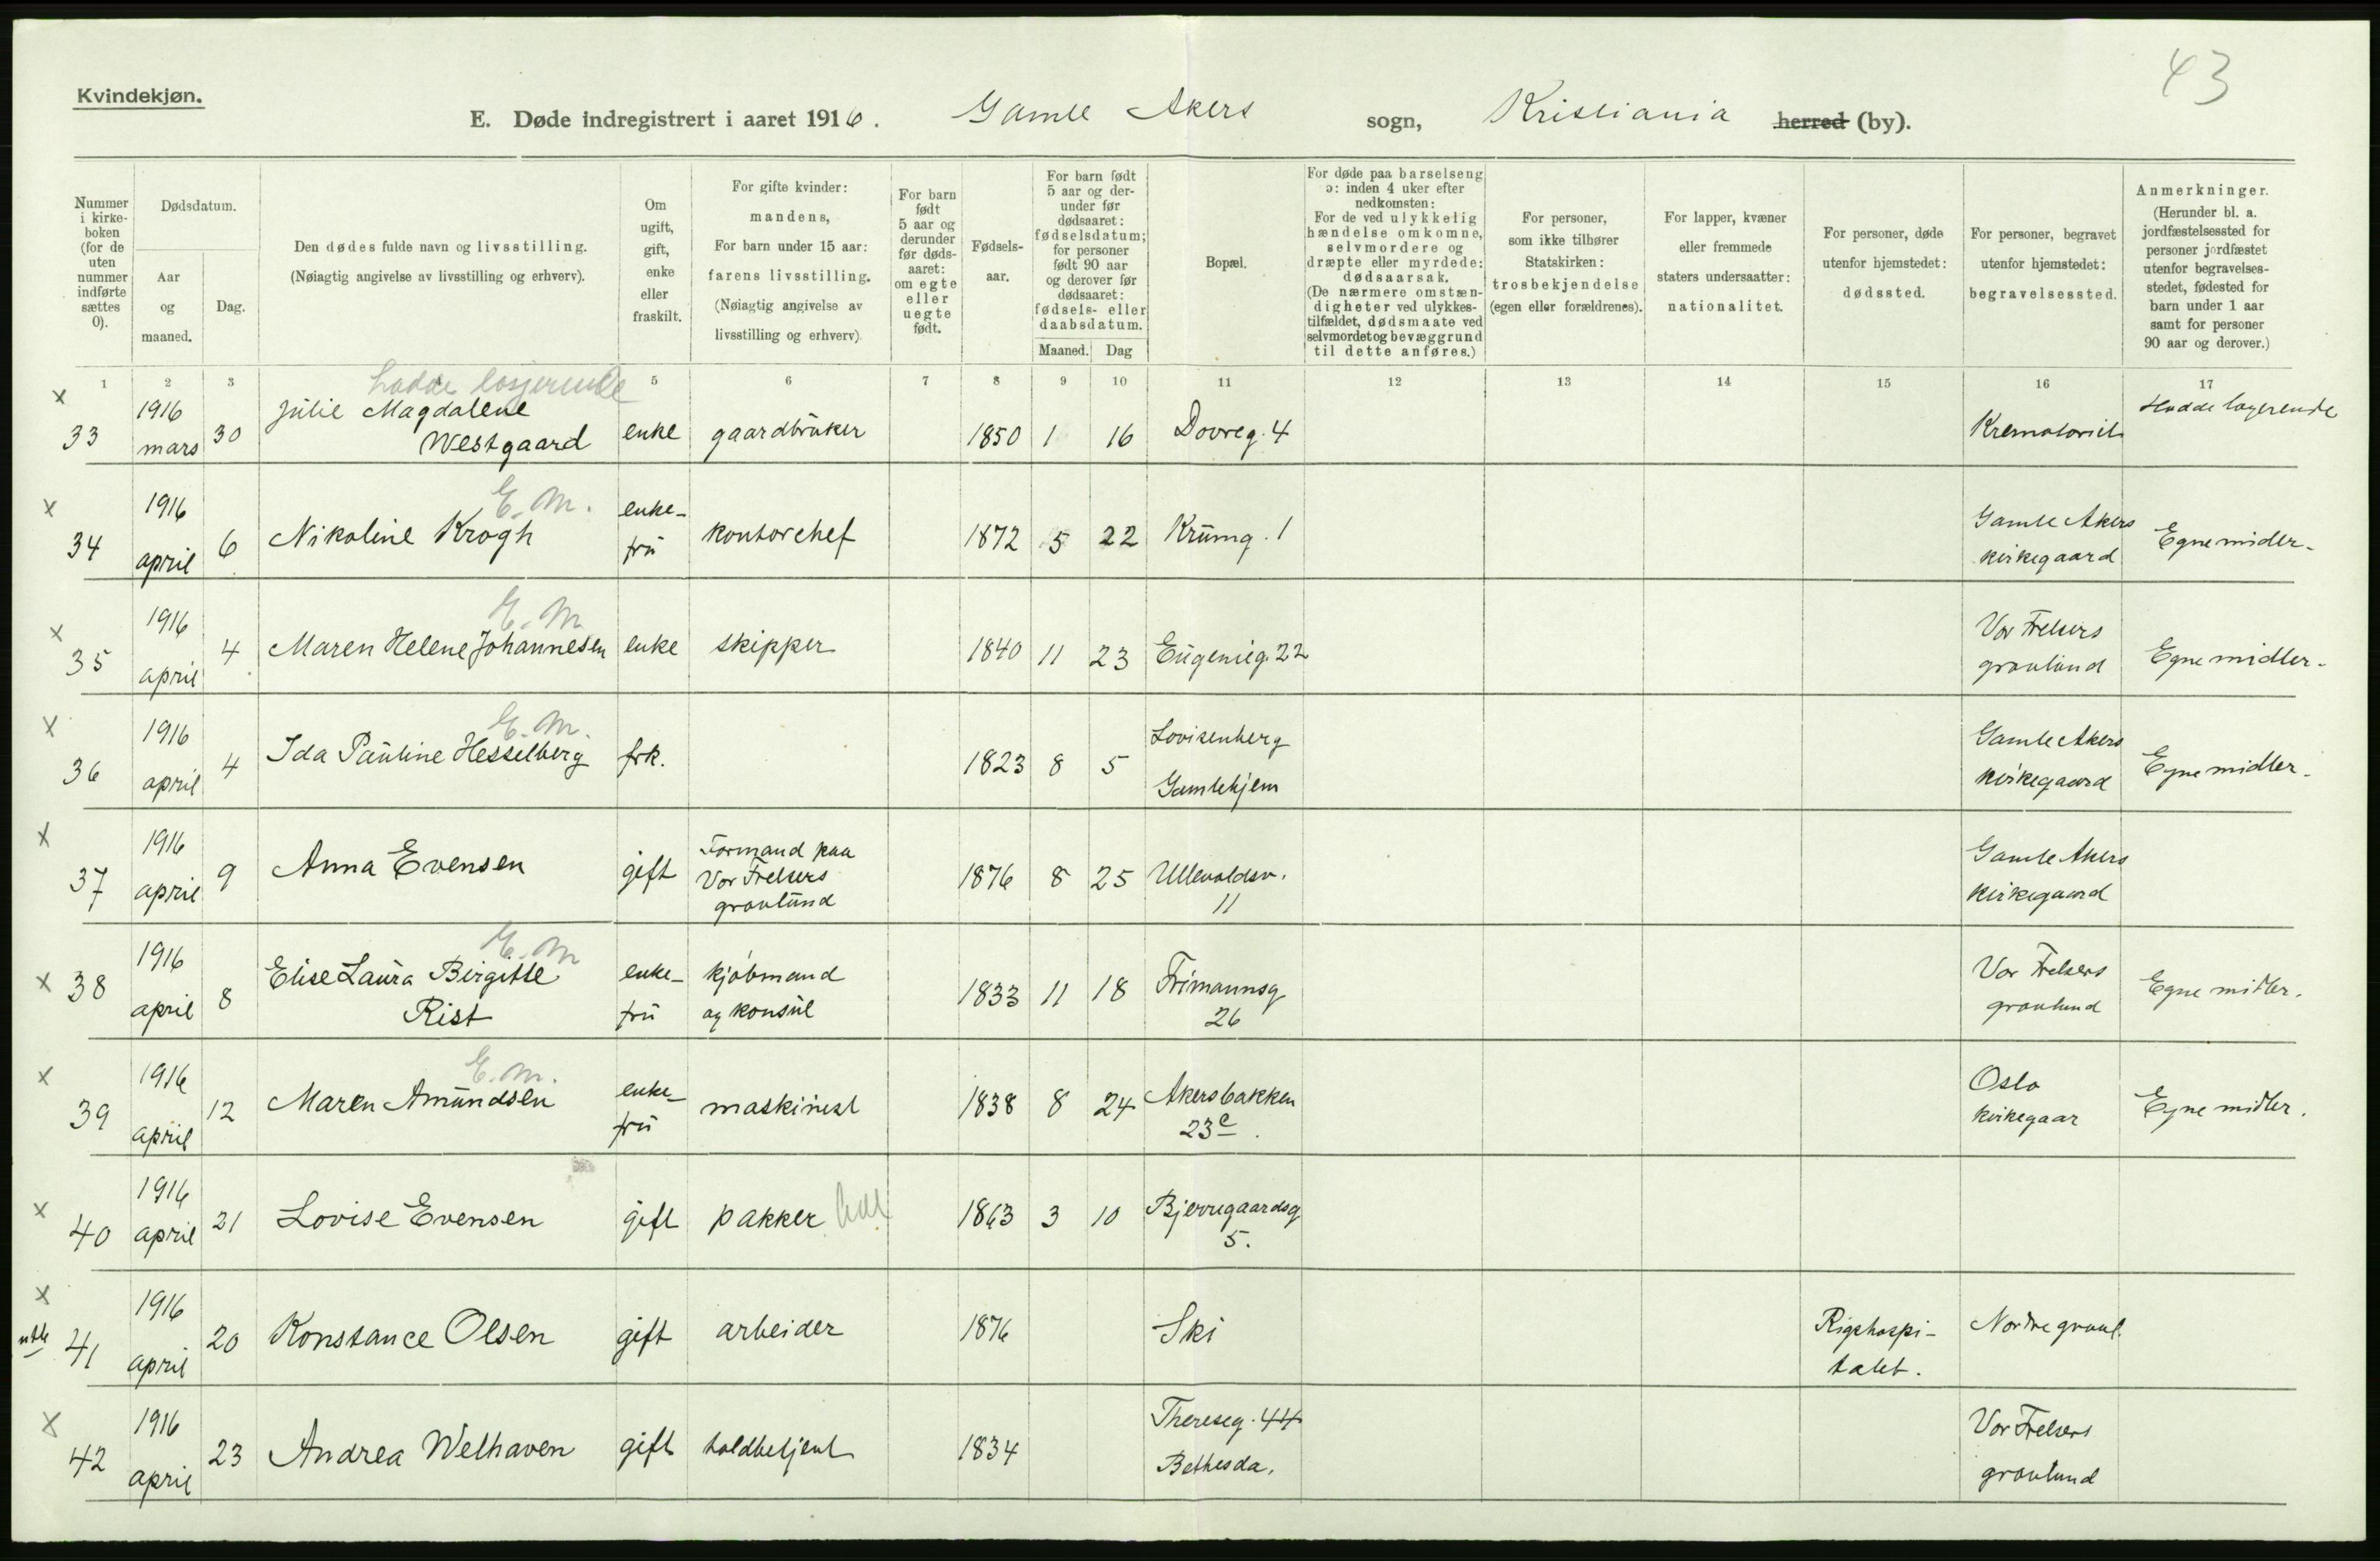 43
Kvindekjøn.
E. Døde indregistrert i aaret 1916. Gamle Akers sogn, Kristiania herred (by).
Nummer i kirkeboken (for de uten nummer indførte sættes 0).
Dødsdatum.
Aar og maaned.
Dag.
Den dødes fulde navn og livsstilling.
(Nøiagtig angivelse av livsstilling og erhverv).
Om ugift, gift, enke eller fraskilt.
For gifte kvinder: mandens,
For barn under 15 aar: farens livsstilling.
(Nøiagtig angivelse av livsstilling og erhverv).
For barn født 5 aar og derunder før dødsaaret: om egte eller uegte født.
Fødselsaar.
For barn født 5 aar og derunder før dødsaaret: fødselsdatum; for personer født 90 aar og derover før dødsaaret: fødsels- eller daabsdatum.
Maaned. Dag
Bopæl.
For døde paa barselseng ɔ: inden 4 uker efter nedkomsten:
For de ved ulykkelig hændelse omkomne, selvmordere og dræpte eller myrdede: dødsaarsak.
(De nærmere omstændigheter ved ulykkestilfældet, dødsmaate ved selvmordet og bevæggrund til dette anføres.)
For personer, som ikke tilhører Statskirken: trosbekjendelse (egen eller forældrenes).
For lapper, kvæner eller fremmede staters undersaatter: nationalitet.
For personer, døde utenfor hjemstedet: dødssted.
For personer, begravet utenfor hjemstedet: begravelsessted.
Anmerkninger.
(Herunder bl. a. jordfæstelsessted for personer jordfæstet utenfor begravelsesstedet, fødested for barn under 1 aar samt for personer 90 aar og derover.)
1 2 3 5 6 7 8 9 10 11 12 13 14 15 16 17
hadde losjerende
x 33 1916 mars 30 Julie Magdalene Westgaard enke gaardbruker 1850 1 16 Dovreg. 4 Krematoriet Hadde logerende
E. M.
x 34 1916 april 6 Nikoline Krogh enkefrü kontorchef 1872 5 22 Krumg. 1 Gamle Akers kirkegaard Egne midler.
E. M.
x 35 1916 april 4 Maren Helene Johannesen enke skipper 1840 11 23 Eugenieg. 22 Vor Frelsers gravlund Egne midler.
E. M.
x 36 1916 april 4 Ida Pauline Hesselberg frk. 1823 8 5 Lovisenberg Gamlehjem Gamle Akers kirkegaard Egne midler.
x 37 1916 april 9 Anna Evensen gift Formand paa Vor Frelsers gravlund 1876 8 25 Ullevoldsv. 11 Gamle Akers kirkegaard
E. M
x 38 1916 april 8 Elise Laura Birgitte Rist enke-fru kjøbmand og konsul 1833 11 18 Frimannsg 26 Vor Frelsers gravlund Egne midler.
E. M.
x 39 1916 april 12 Maren Amundsen enke-fru maskinist 1838 8 24 Akersbakken 23c. Oslo kirkegaar Egne midler.
x 40 1916 april 21 Lovise Evensen gift pakker 1863 3 10 Bjerregaardsg 5.
x 41 1916 april 20 Konstance Olsen gift arbeider 1876 Ski Rigshospitalet. Nordre gravl.
x 42 1916 april 23 Andrea Welhaven gift toldbetjent 1834 Thereseg. 44 Bethesda. Vor Frelsers gravlund